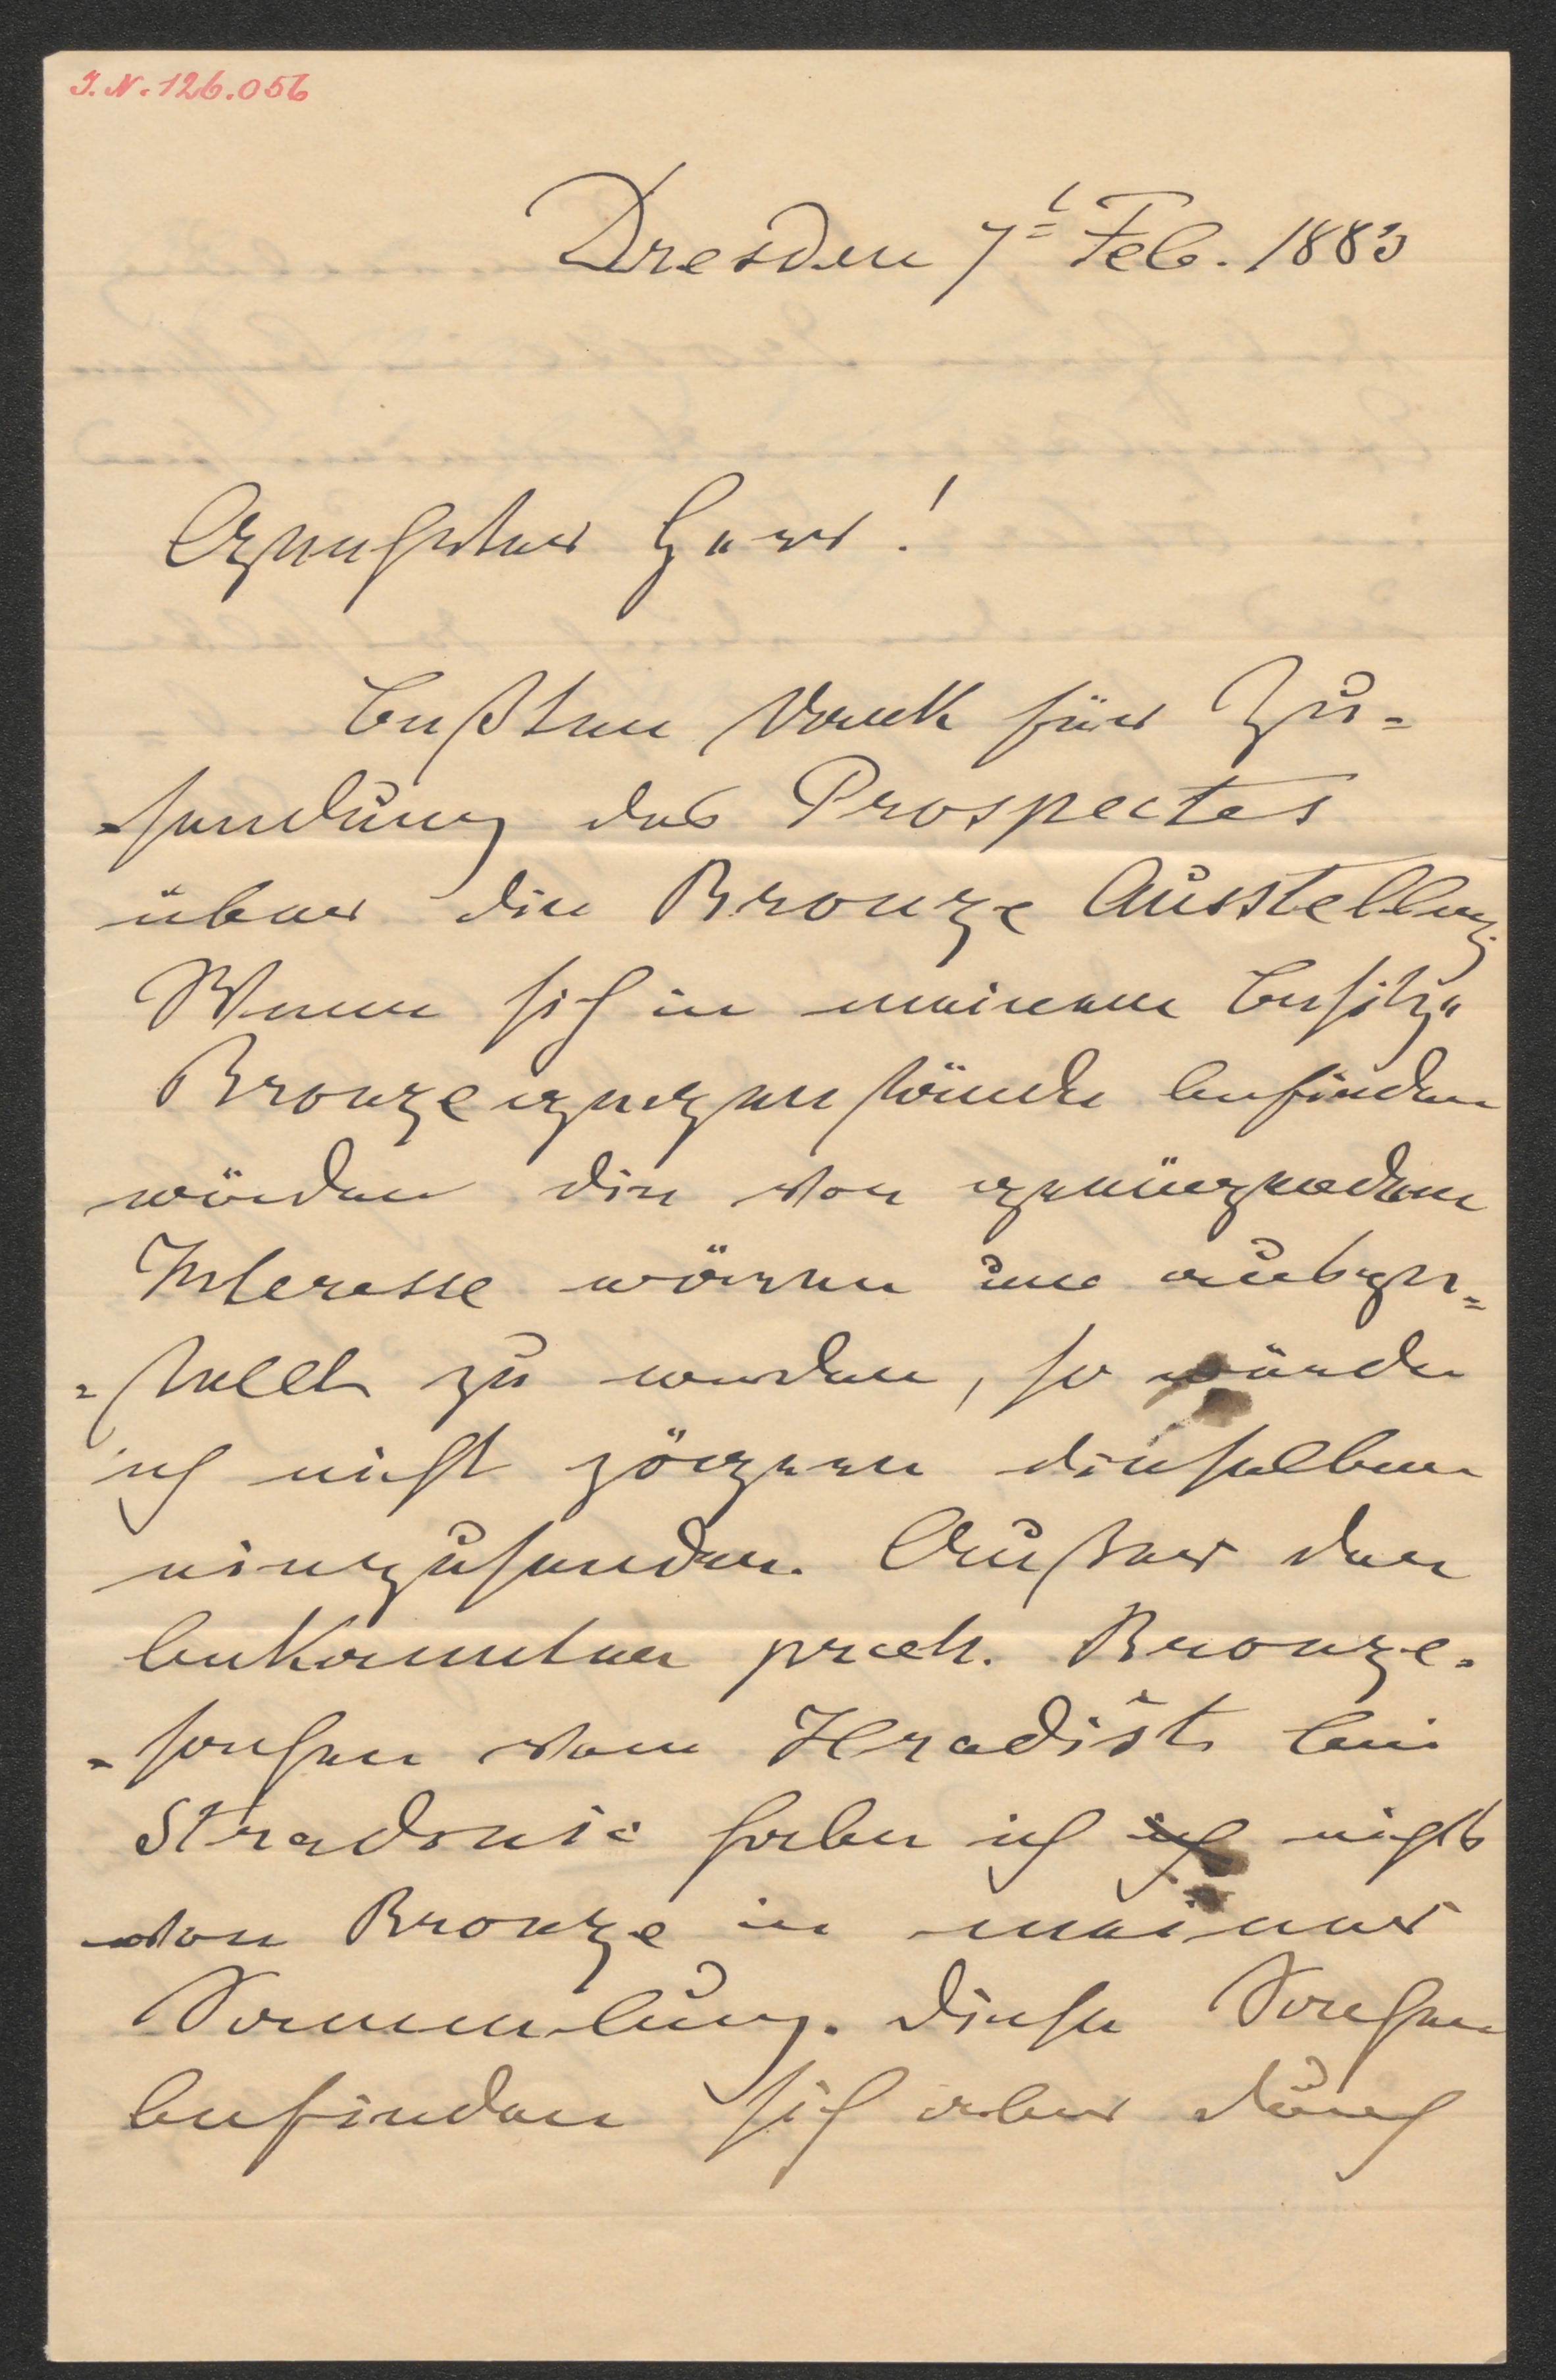 I.N. 126.056
Dresden 7t Feb. 1883
Geehrter Herr!
Besten Dank für Zu-
-sendung des Prospectes
über die Bronze Ausstellung.
Wenn sich in meinem Besitze
Bronzegegenstände befinden
würden die von genügendem
Interesse wären um ausge-
-stellt zu werden, so würde
ich nicht zögern dieselben
einzusenden. Außer den
bekannten praeh. Bronze-
-sachen vom Hradišt bei
Stradonic habe ich ich nichts
von Bronze in meiner
Sammlung. Diese Sachen
befinden sich aber durch